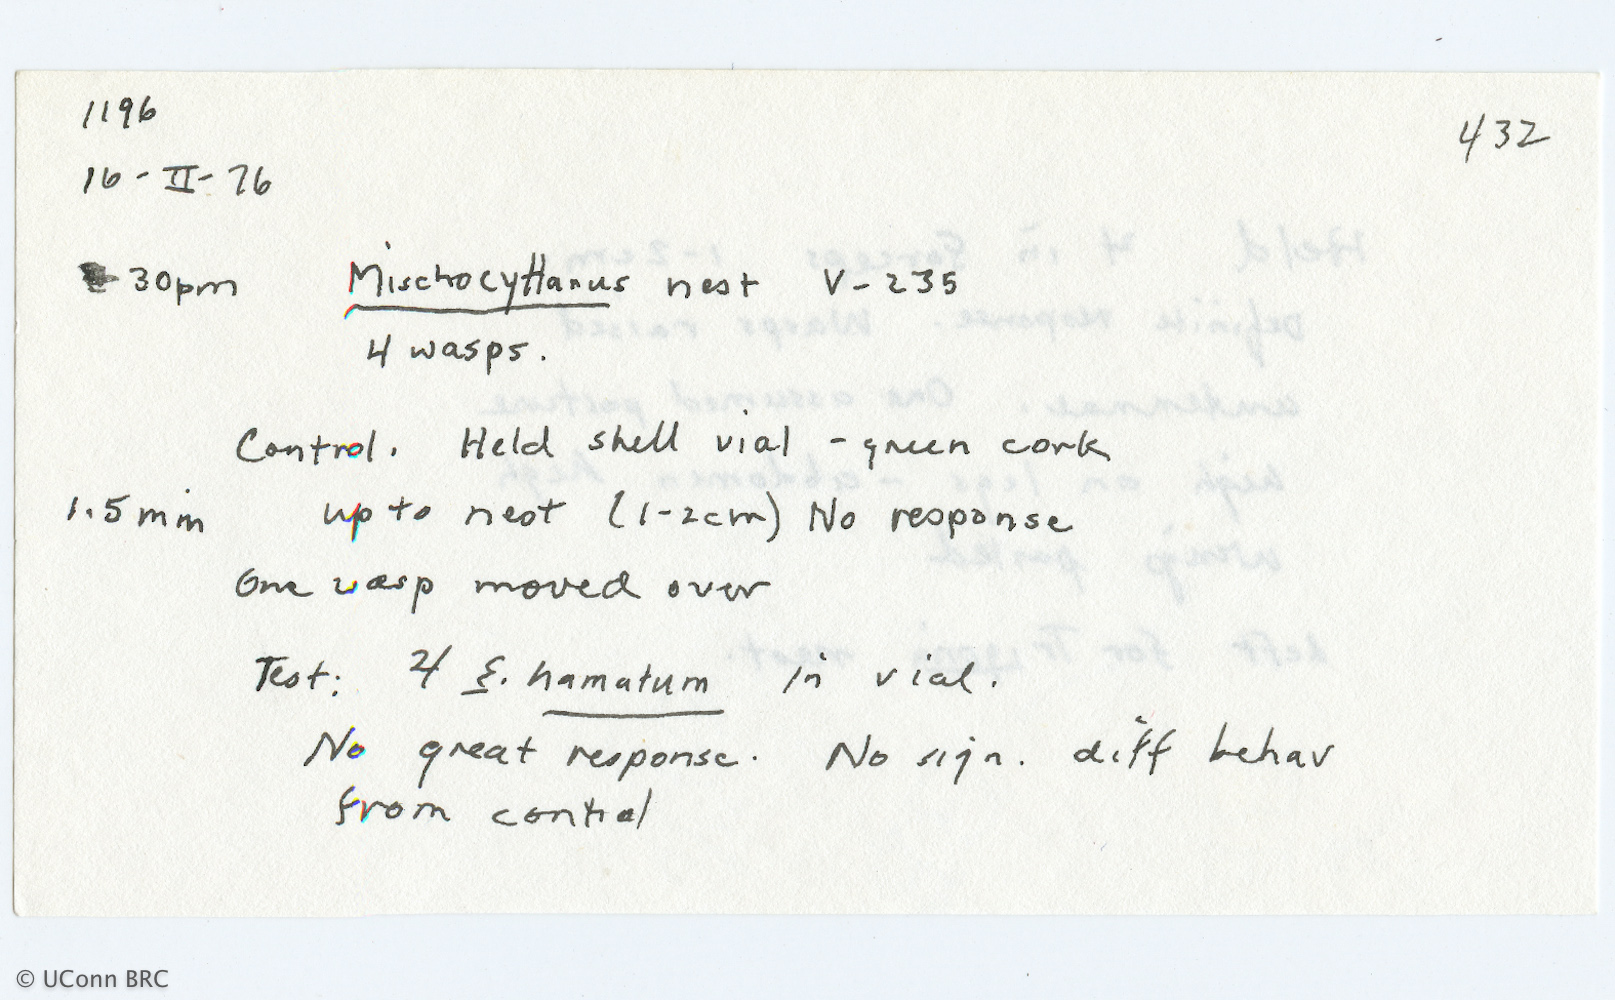 1196
432
16-II-76
30pm Mischocyttarus nest V-235
4 wasps.
Control. Held shell vial - green cork
1.5 min up to nest (1-2cm) No response
One wasp moved over
Test: 4 E. hamatum in vial.
No great response. No sign. diff behav
from control
© UConn BRC